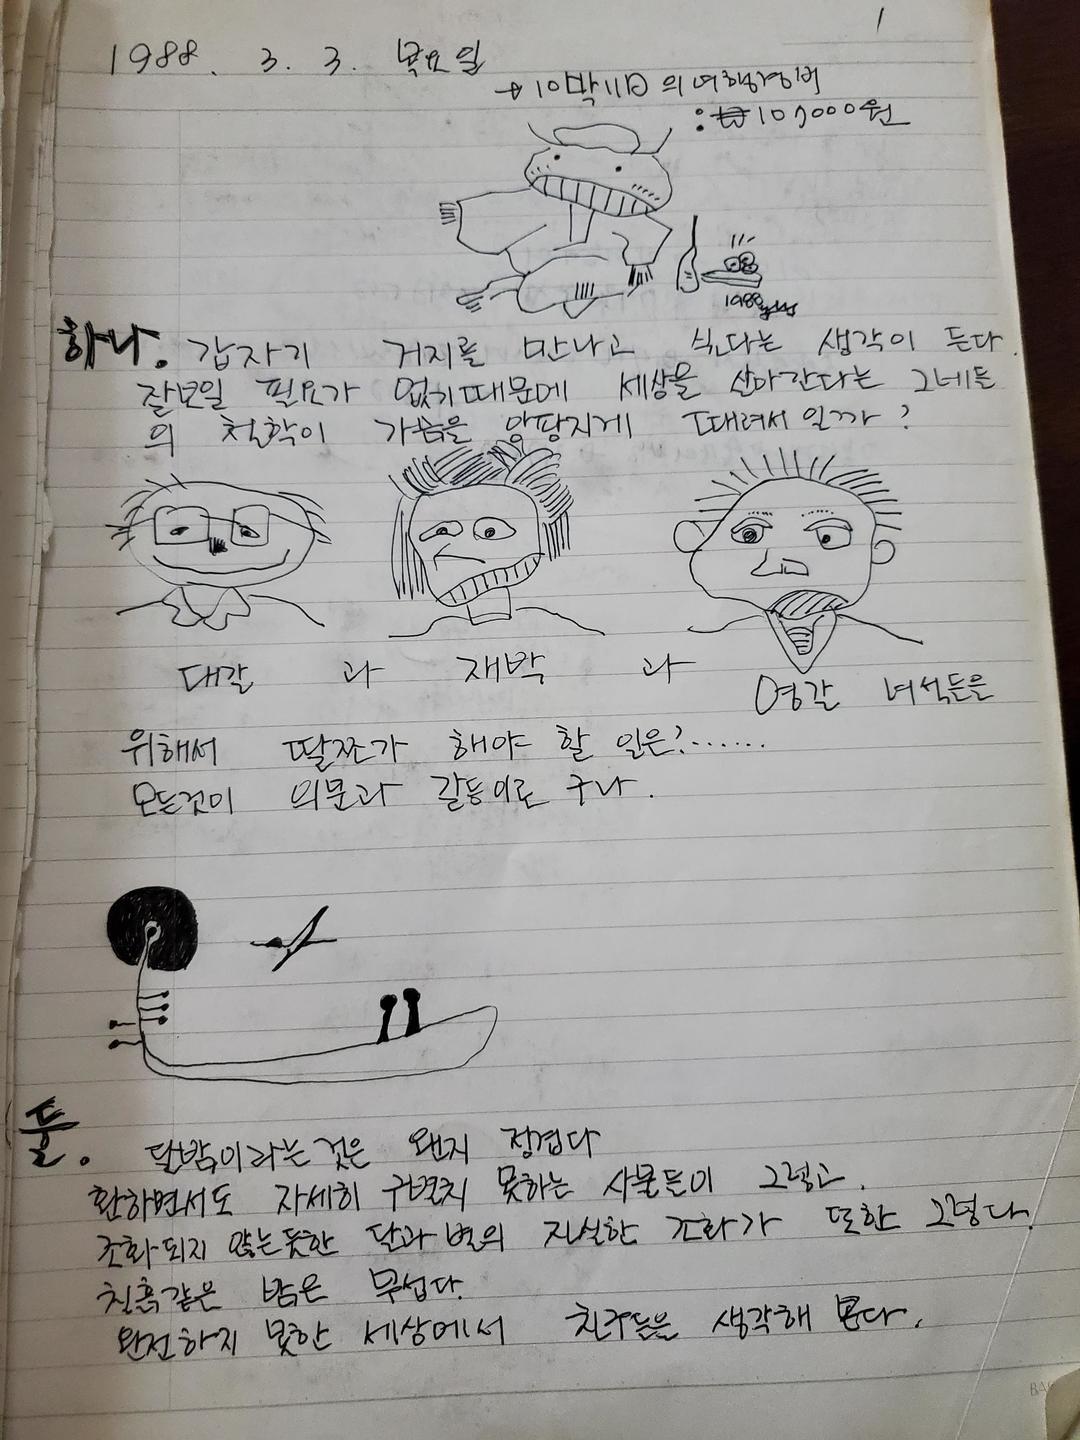 1
1988. 3. 3. 목요일
→ 10박11日 의 여행경비
: ₩10,000원
1988
하나. 갑자기 거지를 만나고 싶다는 생각이 든다.
잘보일 필요가 없기때문에 세상을 살아간다는 그네들
의 철학이 가슴을 앙팡지게 때려서 일까?
대갈 과 재박 과 영갈 녀석들을
위해서 딸쪼가 해야 할 일은?......
모든것이 의문과 갈등이로 구나.
둘. 달밤이라는것은 왠지 정겹다
환하면서도 자세히 구별치 못하는 사물들이 그렇고.
조화되지 않는듯한 달과 별의 진실한 조화가 또한 그렇다.
칠흑같은 밤은 무섭다.
완전하지 못한 세상에서 친구들을 생각해 본다.